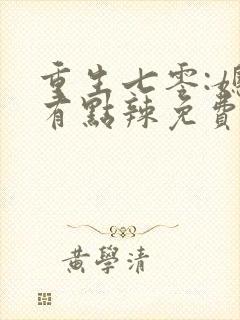 重生七零:媳
有點辣免費
黃學清